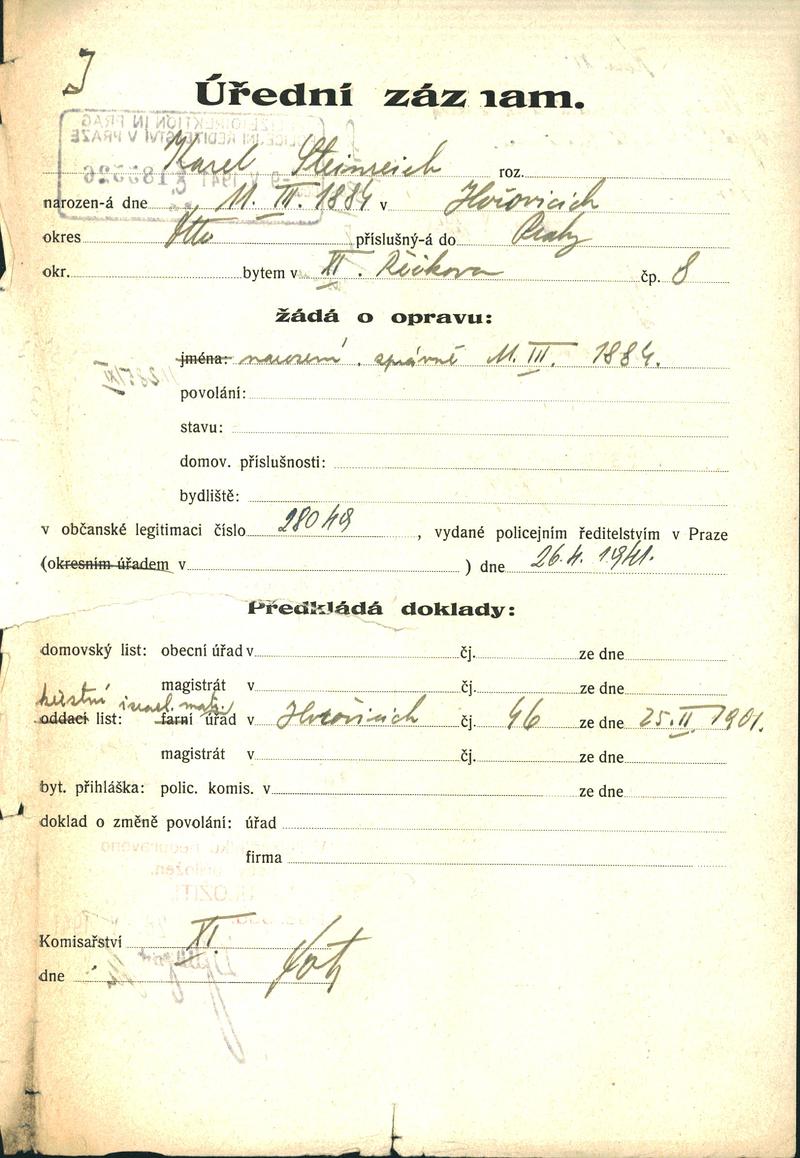 J
Úřední záznam.
Karel Steinreich roz.
narozen-á dne 11. III. 1884 v Hořovicích
okres Dtto příslušný-á do Prahy
okr. bytem v XI. Řičkova čp. 8
žádá o opravu:
jména: narození. správně 11. III. 1884.
povolání:
stavu:
domov. příslušnosti:
bydliště:
v občanské legitimaci číslo 28049, vydané policejním ředitelstvím v Praze
(okresním úřadem v ) dne 26.4. 1941.
Předkládá doklady:
domovský list: obecní úřad v čj. ze dne
magistrát v čj. ze dne
křestní israel. matr.
oddací list: farní úřad v Hořovicích čj. 46 ze dne 25. II. 1901.
magistrát v čj. ze dne
byt. přihláška: polic. komis. v ze dne
doklad o změně povolání: úřad
firma
Komisařství XI.
dne